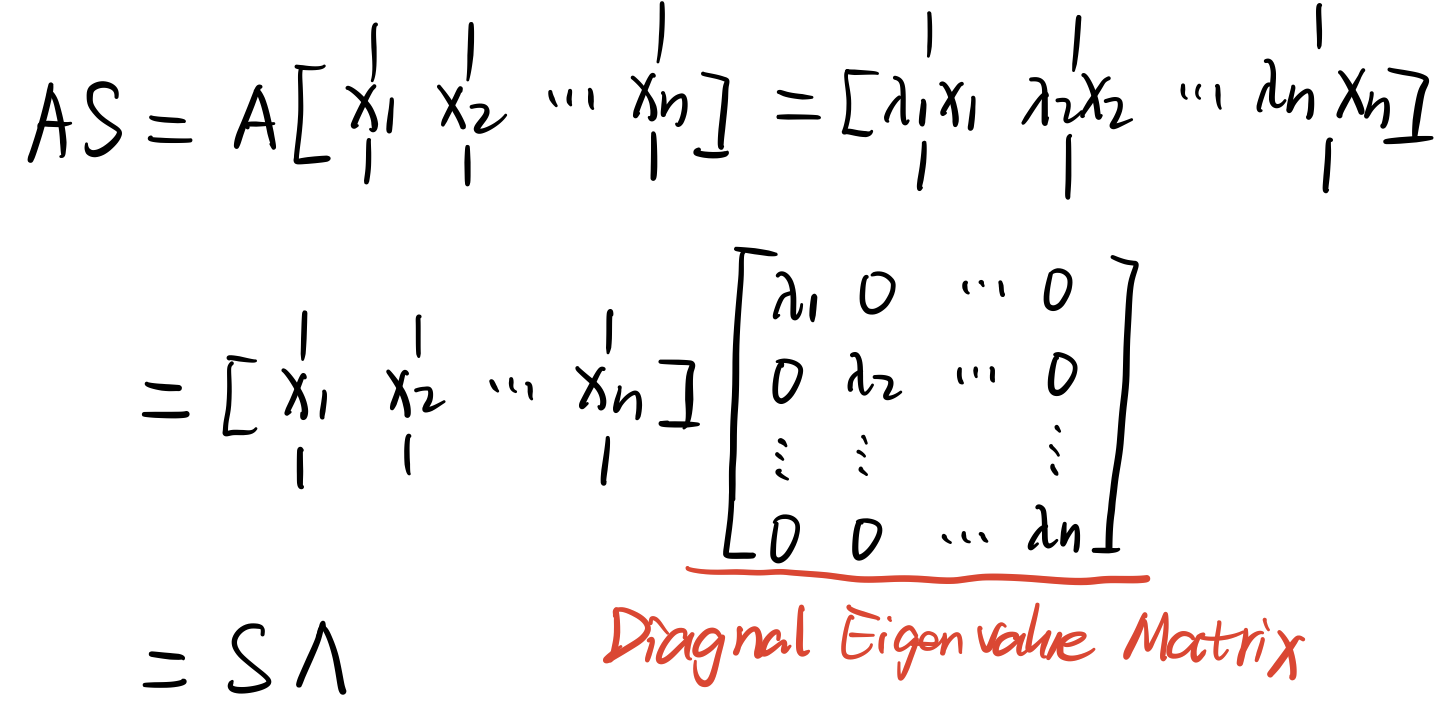 AS = A[x₁ x₂ ... xₙ] = [λ₁x₁ λ₂x₂ ... λₙxₙ]
= [x₁ x₂ ... xₙ] [λ₁ 0 ... 0
0 λ₂ ... 0
⋮ ⋮ ⋮
0 0 ... λₙ]
Diagnal Eigenvalue Matrix
= SΛ